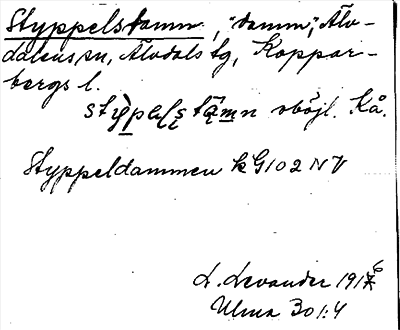 Styppelstamn, "damm", Älv-
dalens sn, Älvdals tg, Koppar-
bergs l.
stypelstämn oböjl. Kå.
Styppeldammen kG 102 NV
L. Levander 1916
Ulma 301:4